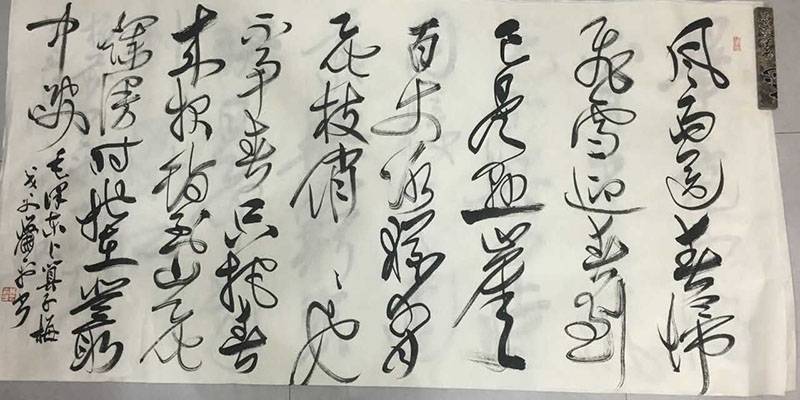 风雨送春归
飞雪迎春到
已是悬崖
百丈冰犹有
花枝俏俏也
不争春只把春
来报待到山花
烂漫时她在丛
中笑
毛泽东卜算子梅
书